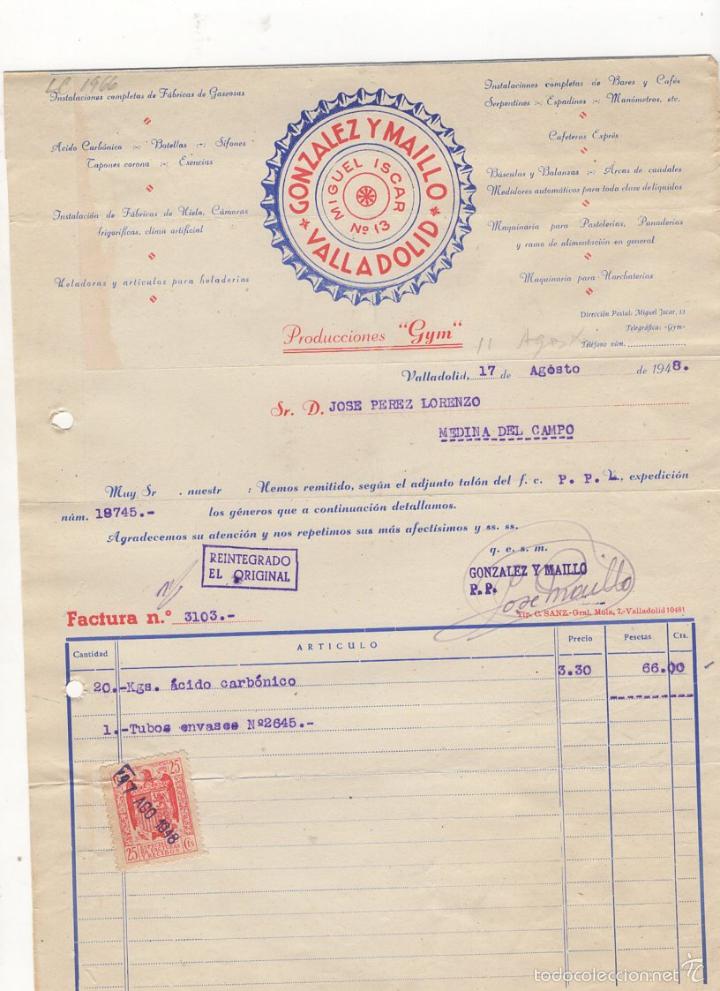 1966
Instalaciones completas de Fábricas de Gaseosas
Acido Carbónico :-: Botellas :-: Sifones
Tapones corona :-: Esencias
Instalación de Fábricas de Hielo, Cámaras
frigoríficas, clima artificial
Heladoras y artículos para heladerías
GONZALEZ Y MAILLO
MIGUEL ISCAR
Nº 13
VALLADOLID
Producciones "Gym"
Instalaciones completas de Bares y Cafés
Serpentines :-: Espadines :-: Manómetros, etc.
Cafeteras Exprés
Básculas y Balanzas :-: Arcas de caudales
Medidores automáticos para toda clase de líquidos
Maquinaria para Pastelerías, Panaderías
y ramo de alimentación en general
Maquinaria para Horchaterías
Dirección Postal: Miguel Iscar, 13
Telegráfica: «Gym»
Teléfono núm.
11 Agosto
Valladolid, 17 de Agósto de 1948.
Sr. D. JOSE PEREZ LORENZO
MEDINA DEL CAMPO
Muy Sr. nuestr : Hemos remitido, según el adjunto talón del f. c. P. P. expedición
núm. 18745.- los géneros que a continuación detallamos.
Agradecemos su atención y nos repetimos sus más afectísimos y ss. ss.
q. e. s. m.
REINTEGRADO
EL ORIGINAL
GONZALEZ Y MAILLO
P. P.
Jose Maillo
Factura n.º 3103.-
Tip. C. SANZ.-Gral. Mola, 7.-Valladolid 10481
Cantidad ARTICULO Precio Pesetas Cts.
20.-Kgs. ácido carbónico 3.30 66.00
1.-Tubos envases Nº2645.-
25
17 AGO 1948
25 Cts
todocoleccion.net